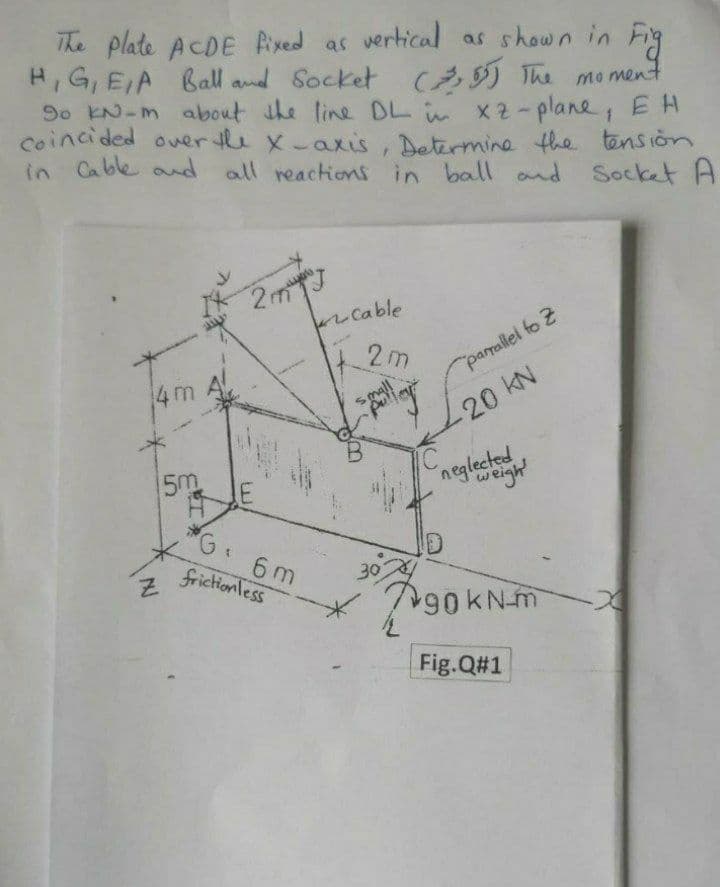 The plate ACDE fixed as vertical as shown in Fig
H, G, E, A Ball and Socket The moment
90 KN-m about the line DL in xz-plane, EH
coincided over the X-axis, Determine the tension
in Cable and all reactions in ball and Socket A
y
J
I
2m
cable
2m
parrallel to Z
4m
A
small
pulley
20 KN
B
C
neglected
weight
5m
H
E
G
D
6m
30°
Z
frictionless
90 kN-m
X
L
Fig.Q#1